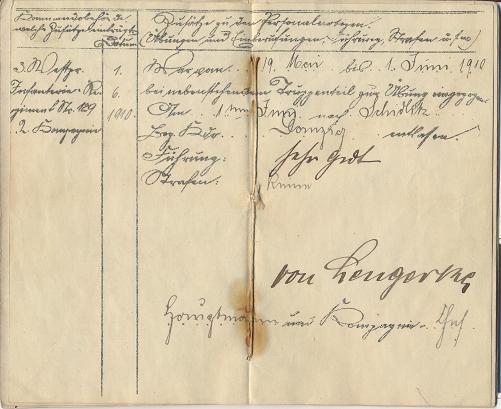 Kommandobehörde
welche Zusätze einträgt
Datum
Zusätze zu den Personalnotizen.
(Übungen und Einberufungen, Führung, Strafen u.s.w.)
3. Westpr. 1. War vom 19. Mai bis 1. Juni 1910
Infanterie-Re- 6. bei nebenstehendem Truppenteil zur Übung eingezogen
giment Nr. 129 1910. Am 1ten Juni nach Schidlitz
2. Kompagnie Danzig entlassen.
Führung: sehr gut
Strafen: Keine
von Lengerke
Hauptmann und Kompagnie-Chef.